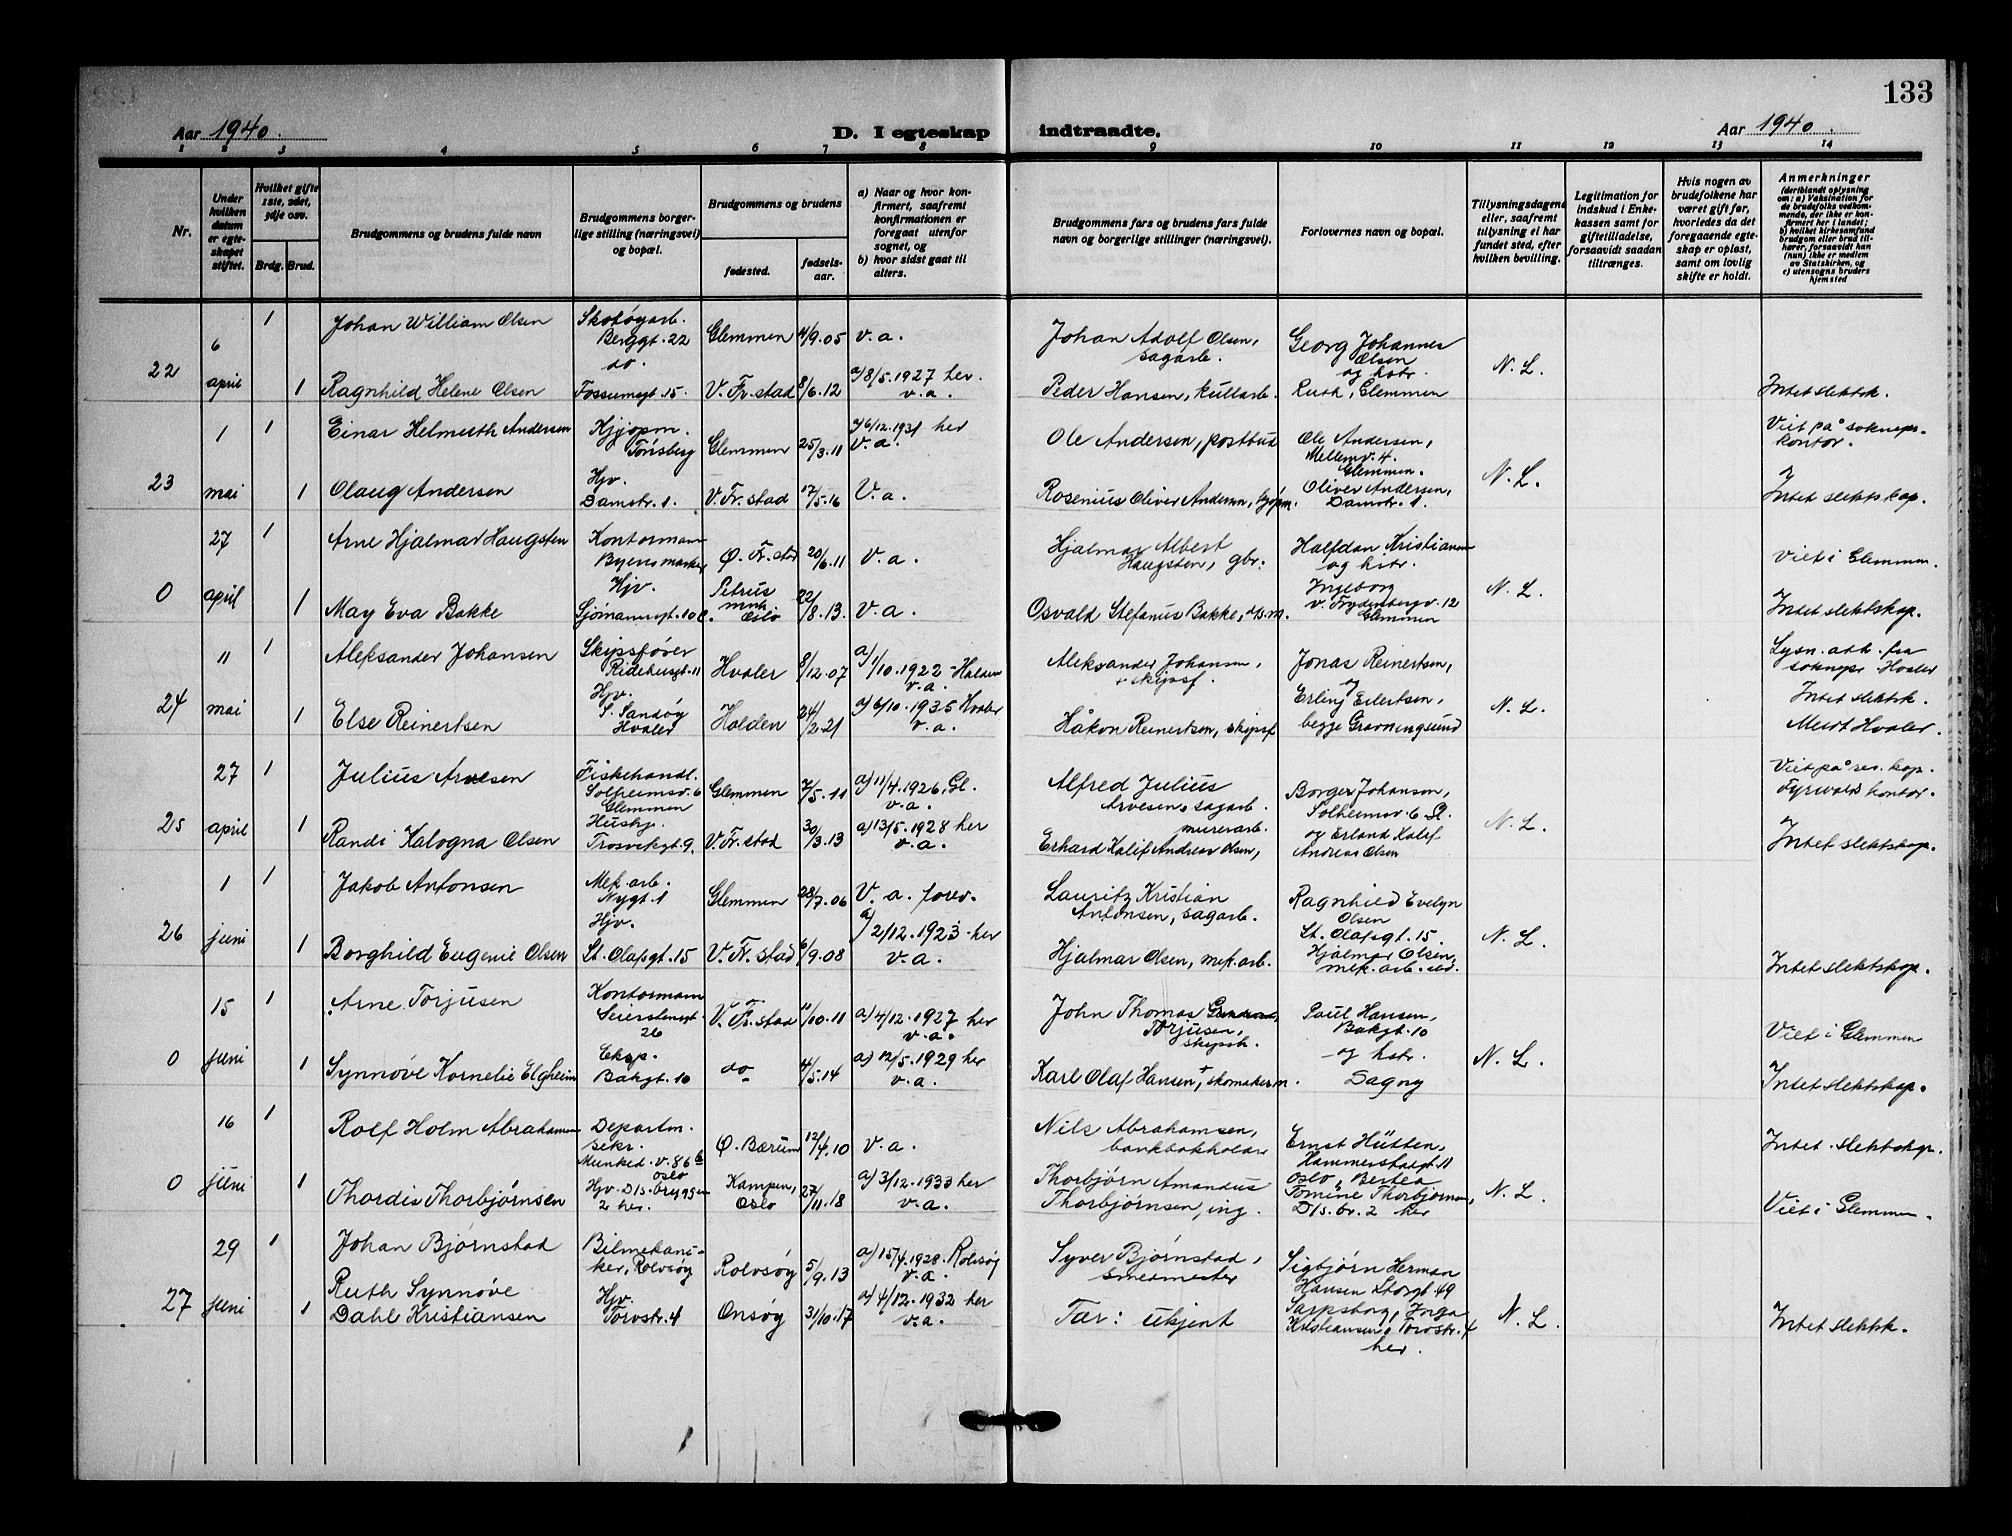 133
Aar 1940.
D. I egteskap indtraadte.
Aar 1940.
1 2 3 4 5 6 7 8 9 10 11 12 13 14
Nr.
Under hvilken datum er egteskapet stiftet.
Hvilket gifte 1ste, 2det, 3dje osv.
Brdg. Brud.
Brudgommens og brudens fulde navn
Brudgommens borgerlige stilling (næringsvei) og bopæl.
Brudgommens og brudens
fødested.
fødselsaar.
a) Naar og hvor konfirmert, saafremt konfirmationen er foregaat utenfor sognet, og
b) hvor sidst gaat til alters.
Brudgommens fars og brudens fars fulde navn og borgerlige stillinger (næringsvei).
Forlovernes navn og bopæl.
Tillysningsdagene eller, saafremt tillysning ei har fundet sted, efter hvilken bevilling.
Legitimation for indskud i Enkekassen samt for giftetilladelse, forsaavidt saadan tiltrænges.
Hvis nogen av brudefolkene har været gift før, hvorledes da det foregaaende egteskap er opløst, samt om lovlig skifte er holdt.
Anmerkninger
(deriblandt oplysning om: a) Vaksination for de brudefolks vedkommende, der ikke er konfirmert her i landet; b) hvilket kirkesamfund brudgom eller brud tilhører, forsaavidt han (hun) ikke er medlem av Statskirken, og c) utensogns bruders hjemsted
22
6 april
1 Johan William Olsen
Skotøyarb. Berggt. 22
Glemmen 4/9.05 v. a.
Johan Adolf Olsen, sagarb.
Georg Johannes Olsen og hstr.
1 Ragnhild Helene Olsen
do. Fossumsgt. 15.
V. Fr.stad 8/6.12
a) 8/5.1927 her. v.a.
Peder Hansen, kullarb.
Ruth, Glemmen
N. L.
Intet slektsk.
23
1 mai
1 Einar Helmuth Andersen
Kjøpm. Tønsberg
Glemmen 25/3.11
a) 6/12.1931 her v. a.
Ole Andersen, postbud
Ole Andersen, Mellemv. 4. Glemmen.
Viet på soknepr. kontor.
1 Olaug Andersen
Hjv. Damstr. 1.
V. Fr.stad 17/5.16 V. a.
Rosenius Oliver Andersen, kjøpm.
Oliver Andersen, Damstr. 1.
N. L.
Intet slektskap.
0
27 april
1 Arne Hjalmar Haugsten
Kontormann Byens marker
Ø. Fr.stad 20/6.11 v. a.
Hjalmar Albert Haugsten, gbr.
Halfdan Kristiansen og hstr.
Viet i Glemmen.
1 May Eva Bakke
Hjv. Sjømannsgt. 10 c.
Petrus mnh Oslo 22/8.13. v. a.
Osvald Stefanus Bakke, ds. m.
Ingeborg v. Frydenbergv. 12 Glemmen
N. L.
Intet slektskap.
24
11 mai
1 Aleksander Johansen
Skipsfører Ridehusgt. 11
Hvaler 8/12.07
a) 1/10.1922 - Halden v. a.
Aleksander Johansen, + skipsf.
Jonas Reinertsen, og
Lysn. att. fra soknepr. Hvaler
1 Else Reinertsen
Hjv. S. Sandøy Hvaler
Halden 24/2.21
a) 6/10.1935 Hvaler v. a.
Håkon Reinertsen, skipsf
Erling Eilertsen, begge Gravningsund
N. L.
Intet slektsk.
Meldt Hvaler.
25
27 april
1 Julius Arvesen
Fiskehandl. Solheimsv. 6 Glemmen
Glemmen 7/5.11
a) 11/4.1926, Gl. v. a.
Alfred Julius Arvesen, sagarb.
Borger Johanson, Solheimsv. 6 Gl.
Viet på res. kap. Fyrwalds kontor.
1 Randi Kalogna Olsen
Hushj. Trosvikgt 9.
V. Fr.stad 30/3.13
a) 13/5.1928 her v. a.
Erhard Kalif Andreas Olsen, murerarb.
og Erland Kalif Andreas Olsen
N. L.
Intet slektskap.
26
1 juni
1 Jakob Antonsen
Mek. arb. Nygt. 1
Glemmen 28/7.06 V. a. forev.
Lauritz Kristian Antonsen, sagarb.
Ragnhild Evelyn Olsen St. Olafsgt. 15.
1 Borghild Eugenie Olsen
Hjv. St. Olafsgt. 15
V. Fr. stad 6/9.08
a) 2/12.1923 - her v. a.
Hjalmar Olsen, mek. arb.
Hjalmar Olsen, mek. arb. sst.
N. L.
Intet slektskap.
0
15 juni
1 Arne Torjusen
Kontormann Seierstensgt. 26
V. Fr. stad 11/10.11
a) 4/12.1927 her v. a.
John Thomas Torjusen, skipsk.
Paul Hansen, Bakgt. 10 og hstr.
Viet i Glemmen
1 Synnøve Kornelie Elgheim
Eksp. Bakgt. 10
do 4/5.14
a) 12/5.1929 her v. a.
Karl Olaf Hansen, + skomakerm.
Dagny
N. L.
Intet slektskap.
0
16 juni
1 Rolf Holm Abrahamsen
Departm. sekr. Munked. v. 86 b Oslo
Ø. Bærum 12/4.10 v. a.
Nils Abrahamsen, bankbokholder
Ernst Hütten, Hammerstadgt. 11 Oslo,
Intet slektskap.
1 Thordis Thorbjørnsen
Hjv. D/s. brygg en 2 her.
Kampen, Oslo 27/11.18
a) 3/12.1933 her v. a.
Thorbjørn Amandus Thorbjørnsen, ing.
Bertea Tomine Thorbjørnsen, D/s. br. 2 her
N. L.
Viet i Glemmen.
27
29 juni
1 Johan Bjørnstad
Bilmekaniker, Rolvsøy
Rolvsøy 5/9.13
a) 15/4.1928. Rolvsøy v. a.
Syver Bjørnstad, smedmester
Sigbjørn Herman Hansen Storgt 49 Sarpsborg,
1 Ruth Synnøve Dahl Kristiansen
Hjv. Torvstr. 4
Onsøy 31/10.17
a) 4/12.1932 her v. a.
Far: ukjent
Inga Kristiansen, Torvstr. 4 her.
N. L.
Intet slektsk.